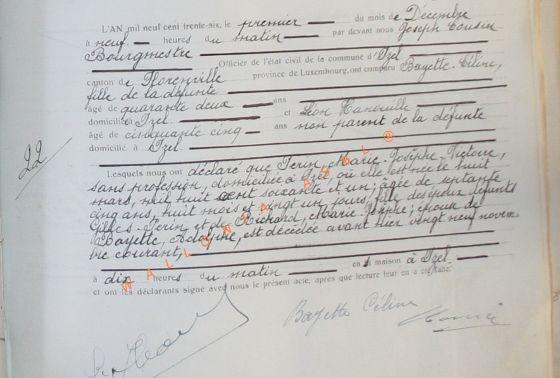 L'AN mil neuf cent trente-six, le premier du mois de Décembre
à neuf heures du matin par devant nous Joseph Cousin
Bourgmestre Officier de l'état civil de la commune d'Izel
canton de Florenville province de Luxembourg, ont comparu Bayette, Céline,
fille de la défunte
âgé de quarante deux ans et Léon
domicilié à Izel
âgé de cinquante cinq ans non parent de la défunte
domicilié à Izel
22
Lesquels nous ont déclaré que Perin, Marie-Josèphe, Victoire,
sans profession, domiciliée à Izel, où elle est née le huit
mars, mil huit cent soixante et un; âgée de septante
cinq ans, huit mois et vingt un jours, fille des époux défunts
Gilles Perin et de Richard, Marie-Josèphe; épouse de
Bayette, Adolphe, est décédée avant hier vingt neuf novem-
bre courant,
à dix heures du matin en sa maison à Izel
et ont les déclarants signé avec nous le présent acte, après que lecture leur en a été faite.
Bayette Céline
WALLONIA ASBL ©